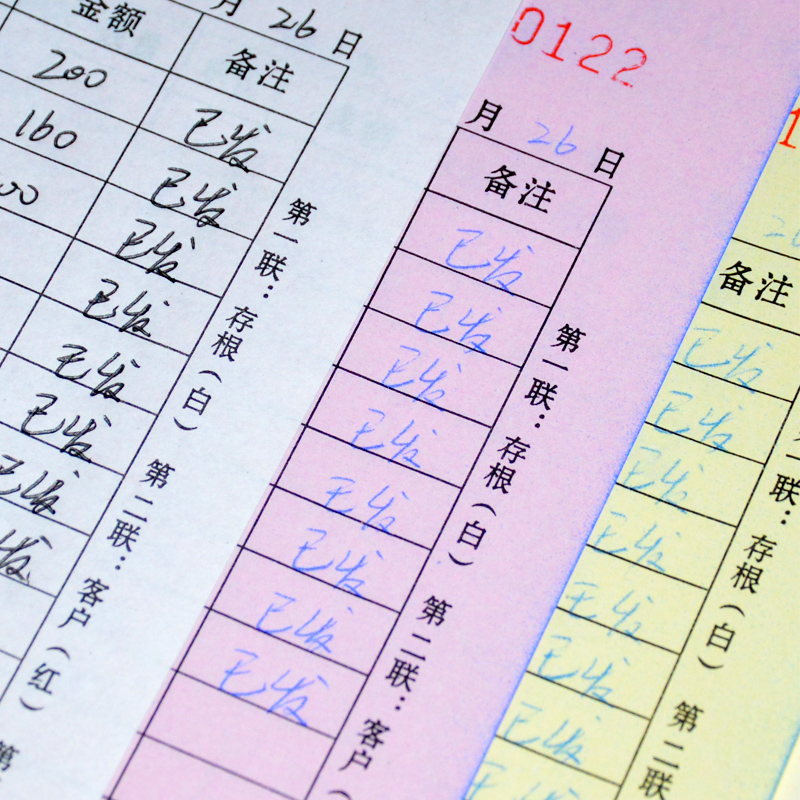 月 26 日
金额 备注
200 已发
160 已发
已发
已发
已发
已发
已发
发
第一联：存根（白） 第二联：客户（红）
第
0122
月 26 日
备注
已发
已发
已发
已发
已发
已发
已发
已发
第一联：存根（白） 第二联：客户（
1
备注
已发
已发
已发
已发
已发
已发
已发
已发
第一联：存根（白） 第二联